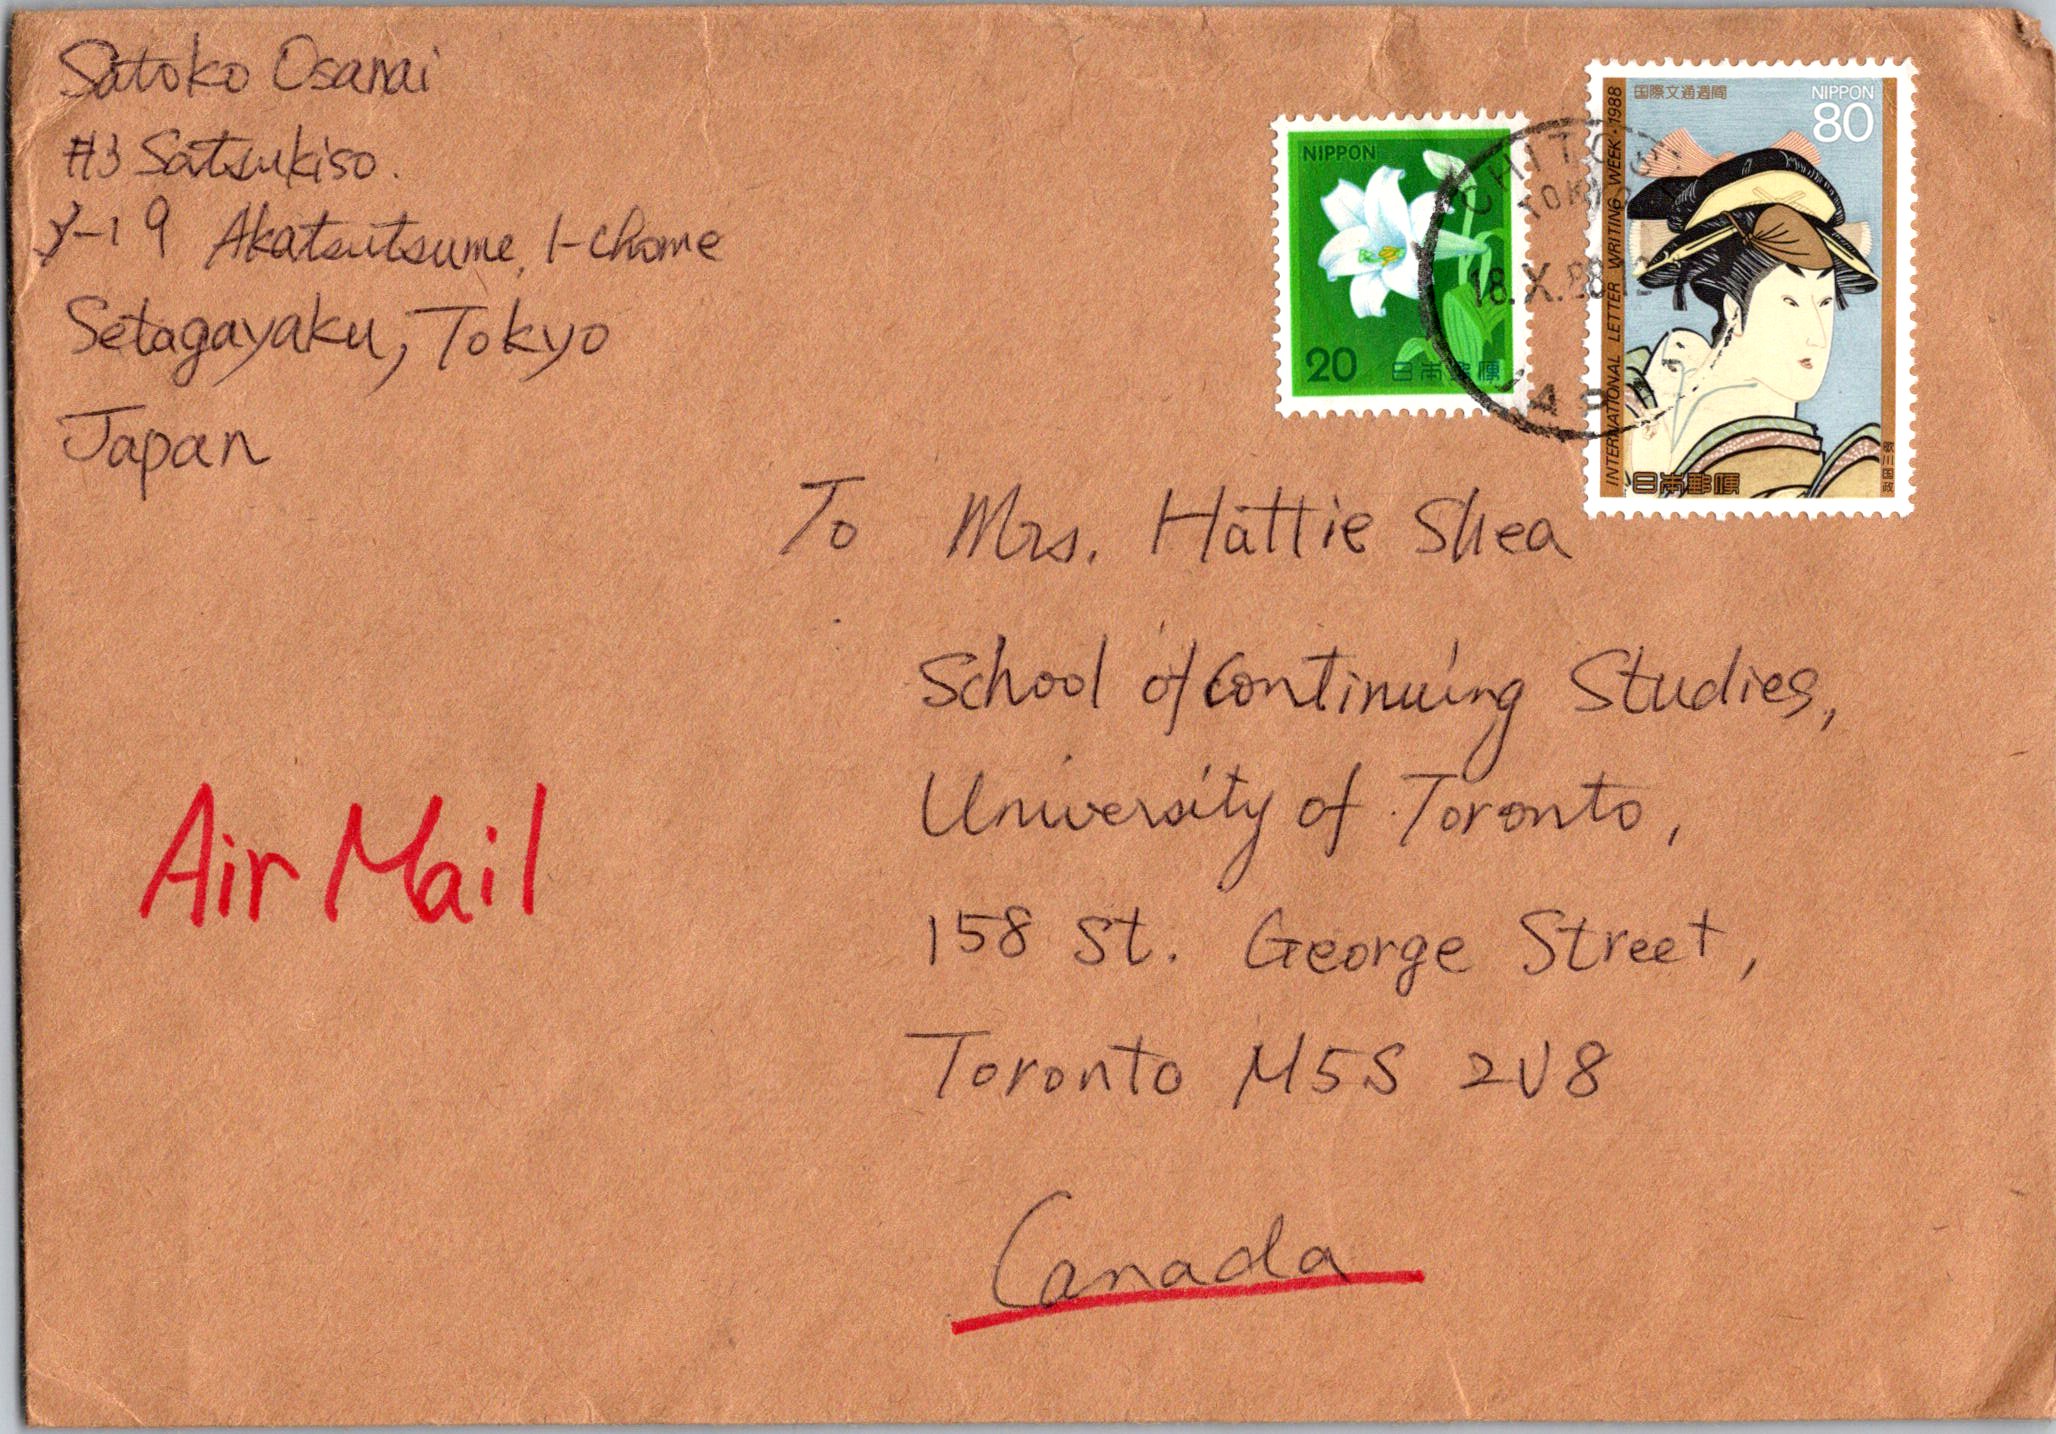 Satoko Osanai
#3 Satsukiso.
-19 Akatsutsume, 1-chome
Setagayaku, Tokyo
Japan
NIPPON
20
日本郵便
国際文通週間
NIPPON
80
INTERNATIONAL LETTER WRITING WEEK・1988
日本郵便
歌川国政
CHITO
TOKYO
18.X.88.12
To Mrs. Hattie Shea
School of Continuing Studies,
University of Toronto,
158 St. George Street,
Toronto M5S 2V8
Canada
Air Mail